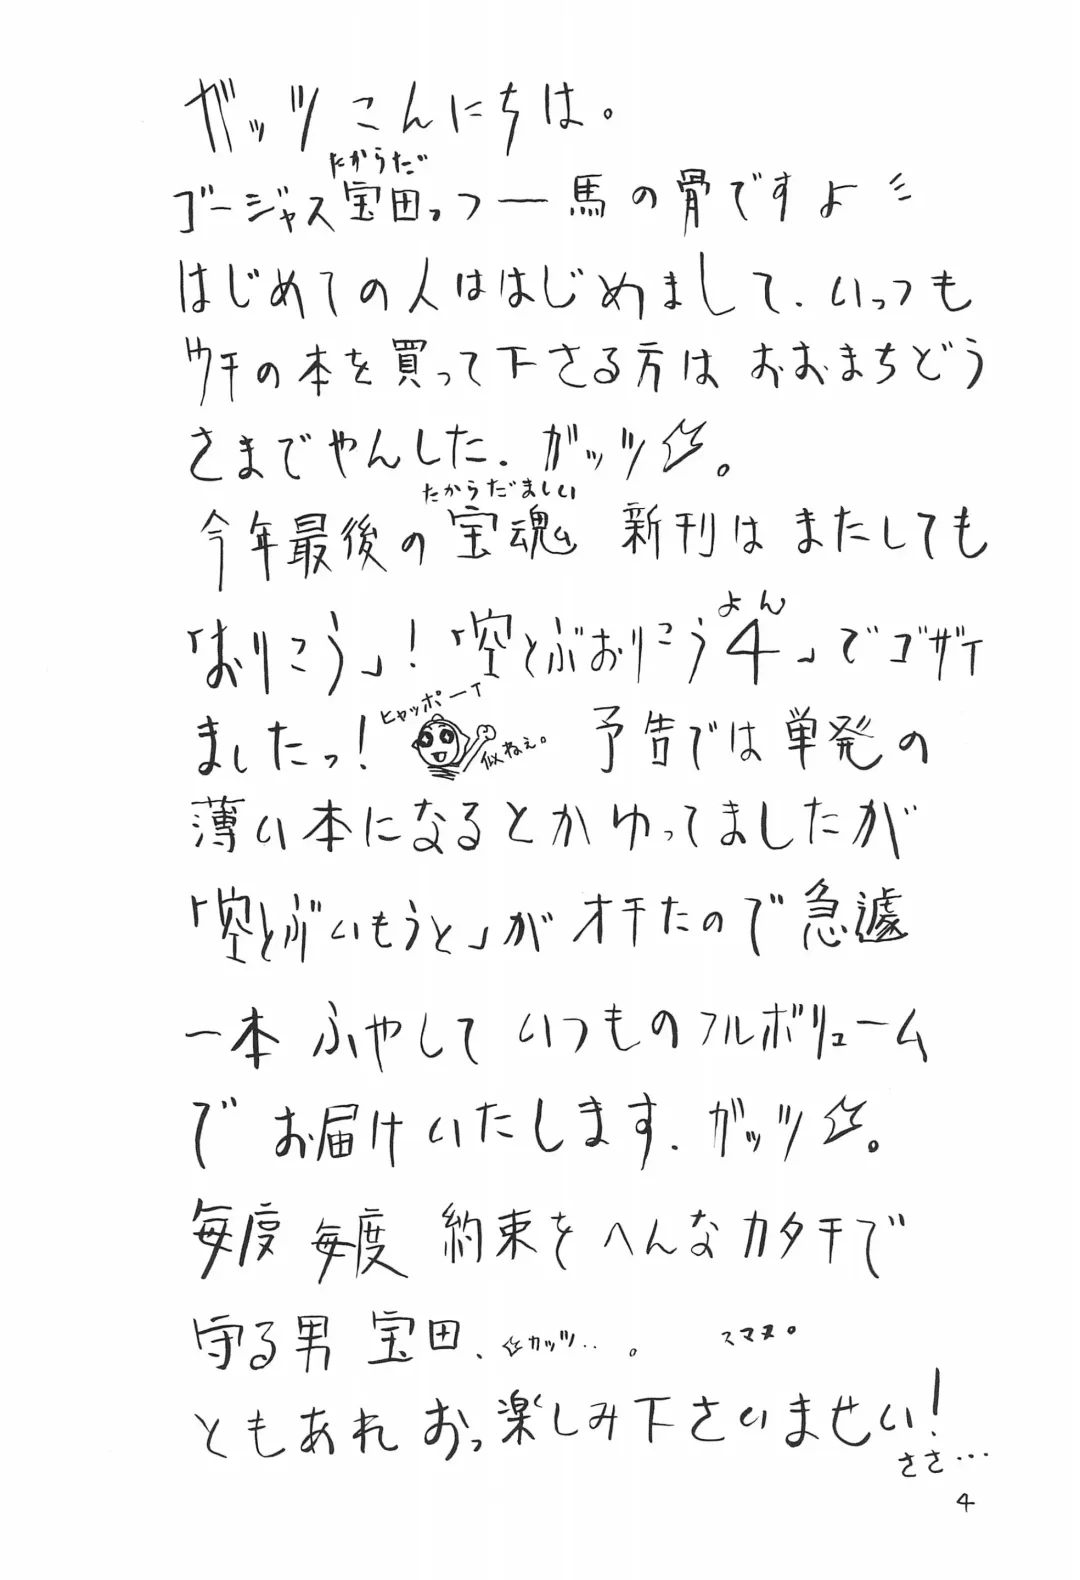 ガッツ こんにちは。
たからだ
ゴージャス宝田っつー馬の骨ですよ
はじめての人ははじめまして、いっつも
ウチの本を買って下さる方は おおまちどう
さまでやんした、ガッツ☆。
たからだましい
今年最後の宝魂 新刊は またしても
よん
「おりこう」!「空とぶおりこう4」でゴザイ
ましたっ! ヒャッポーイ 似ねぇ。 予告では単発の
薄い本になるとかゆってましたが
「空とぶいもうと」がオチたので急遽
一本 ふやして いつものフルボリューム
で お届けいたします、ガッツ☆。
毎度毎度 約束を へんなカタチで
守る男 宝田、☆ガッツ…。 スマヌ。
ともあれ おっ楽しみ下さいませい!
ささ…
4